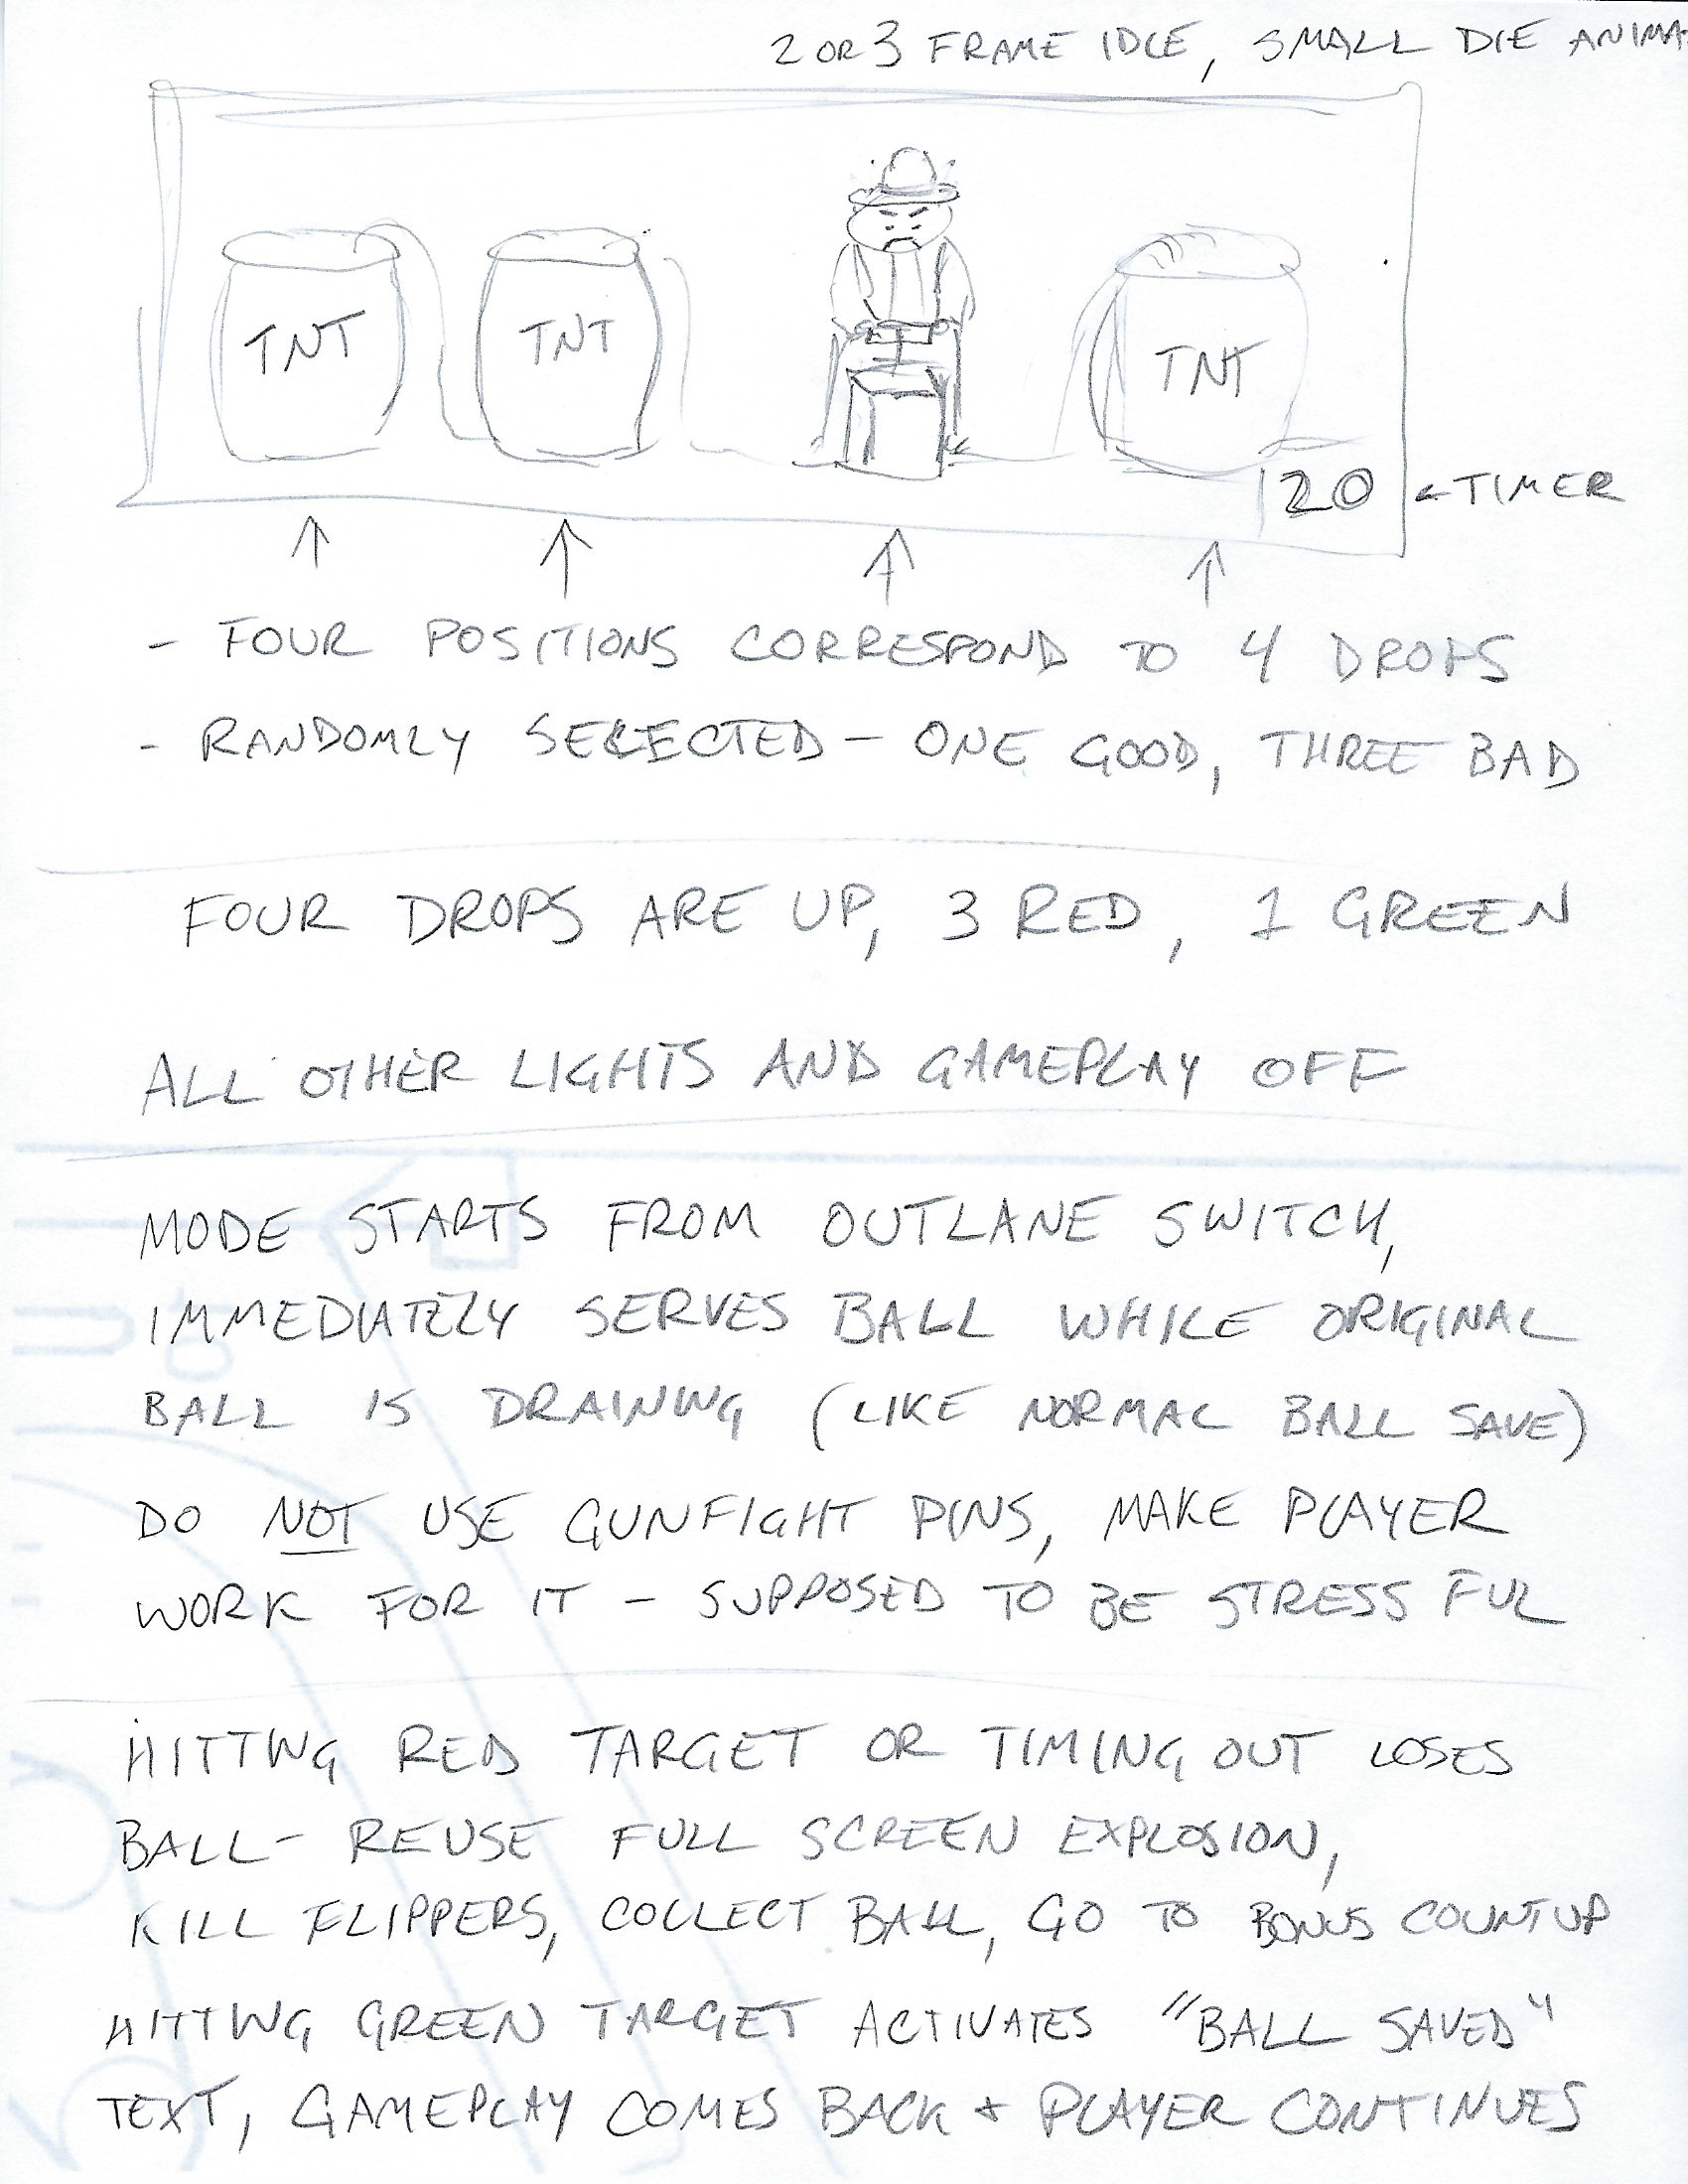 2 OR 3 FRAME IDLE, SMALL DIE ANIMA
TNT TNT TNT
20 ←TIMER
- FOUR POSITIONS CORRESPOND TO 4 DROPS
- RANDOMLY SELECTED - ONE GOOD, THREE BAD
FOUR DROPS ARE UP, 3 RED, 1 GREEN
ALL OTHER LIGHTS AND GAMEPLAY OFF
MODE STARTS FROM OUTLANE SWITCH,
IMMEDIATELY SERVES BALL WHILE ORIGINAL
BALL IS DRAINING (LIKE NORMAL BALL SAVE)
DO NOT USE GUNFIGHT PINS, MAKE PLAYER
WORK FOR IT - SUPPOSED TO BE STRESSFUL
HITTING RED TARGET OR TIMING OUT LOSES
BALL- REUSE FULL SCREEN EXPLOSION,
KILL FLIPPERS, COLLECT BALL, GO TO BONUS COUNTUP
HITTING GREEN TARGET ACTIVATES "BALL SAVED"
TEXT, GAMEPLAY COMES BACK + PLAYER CONTINUES